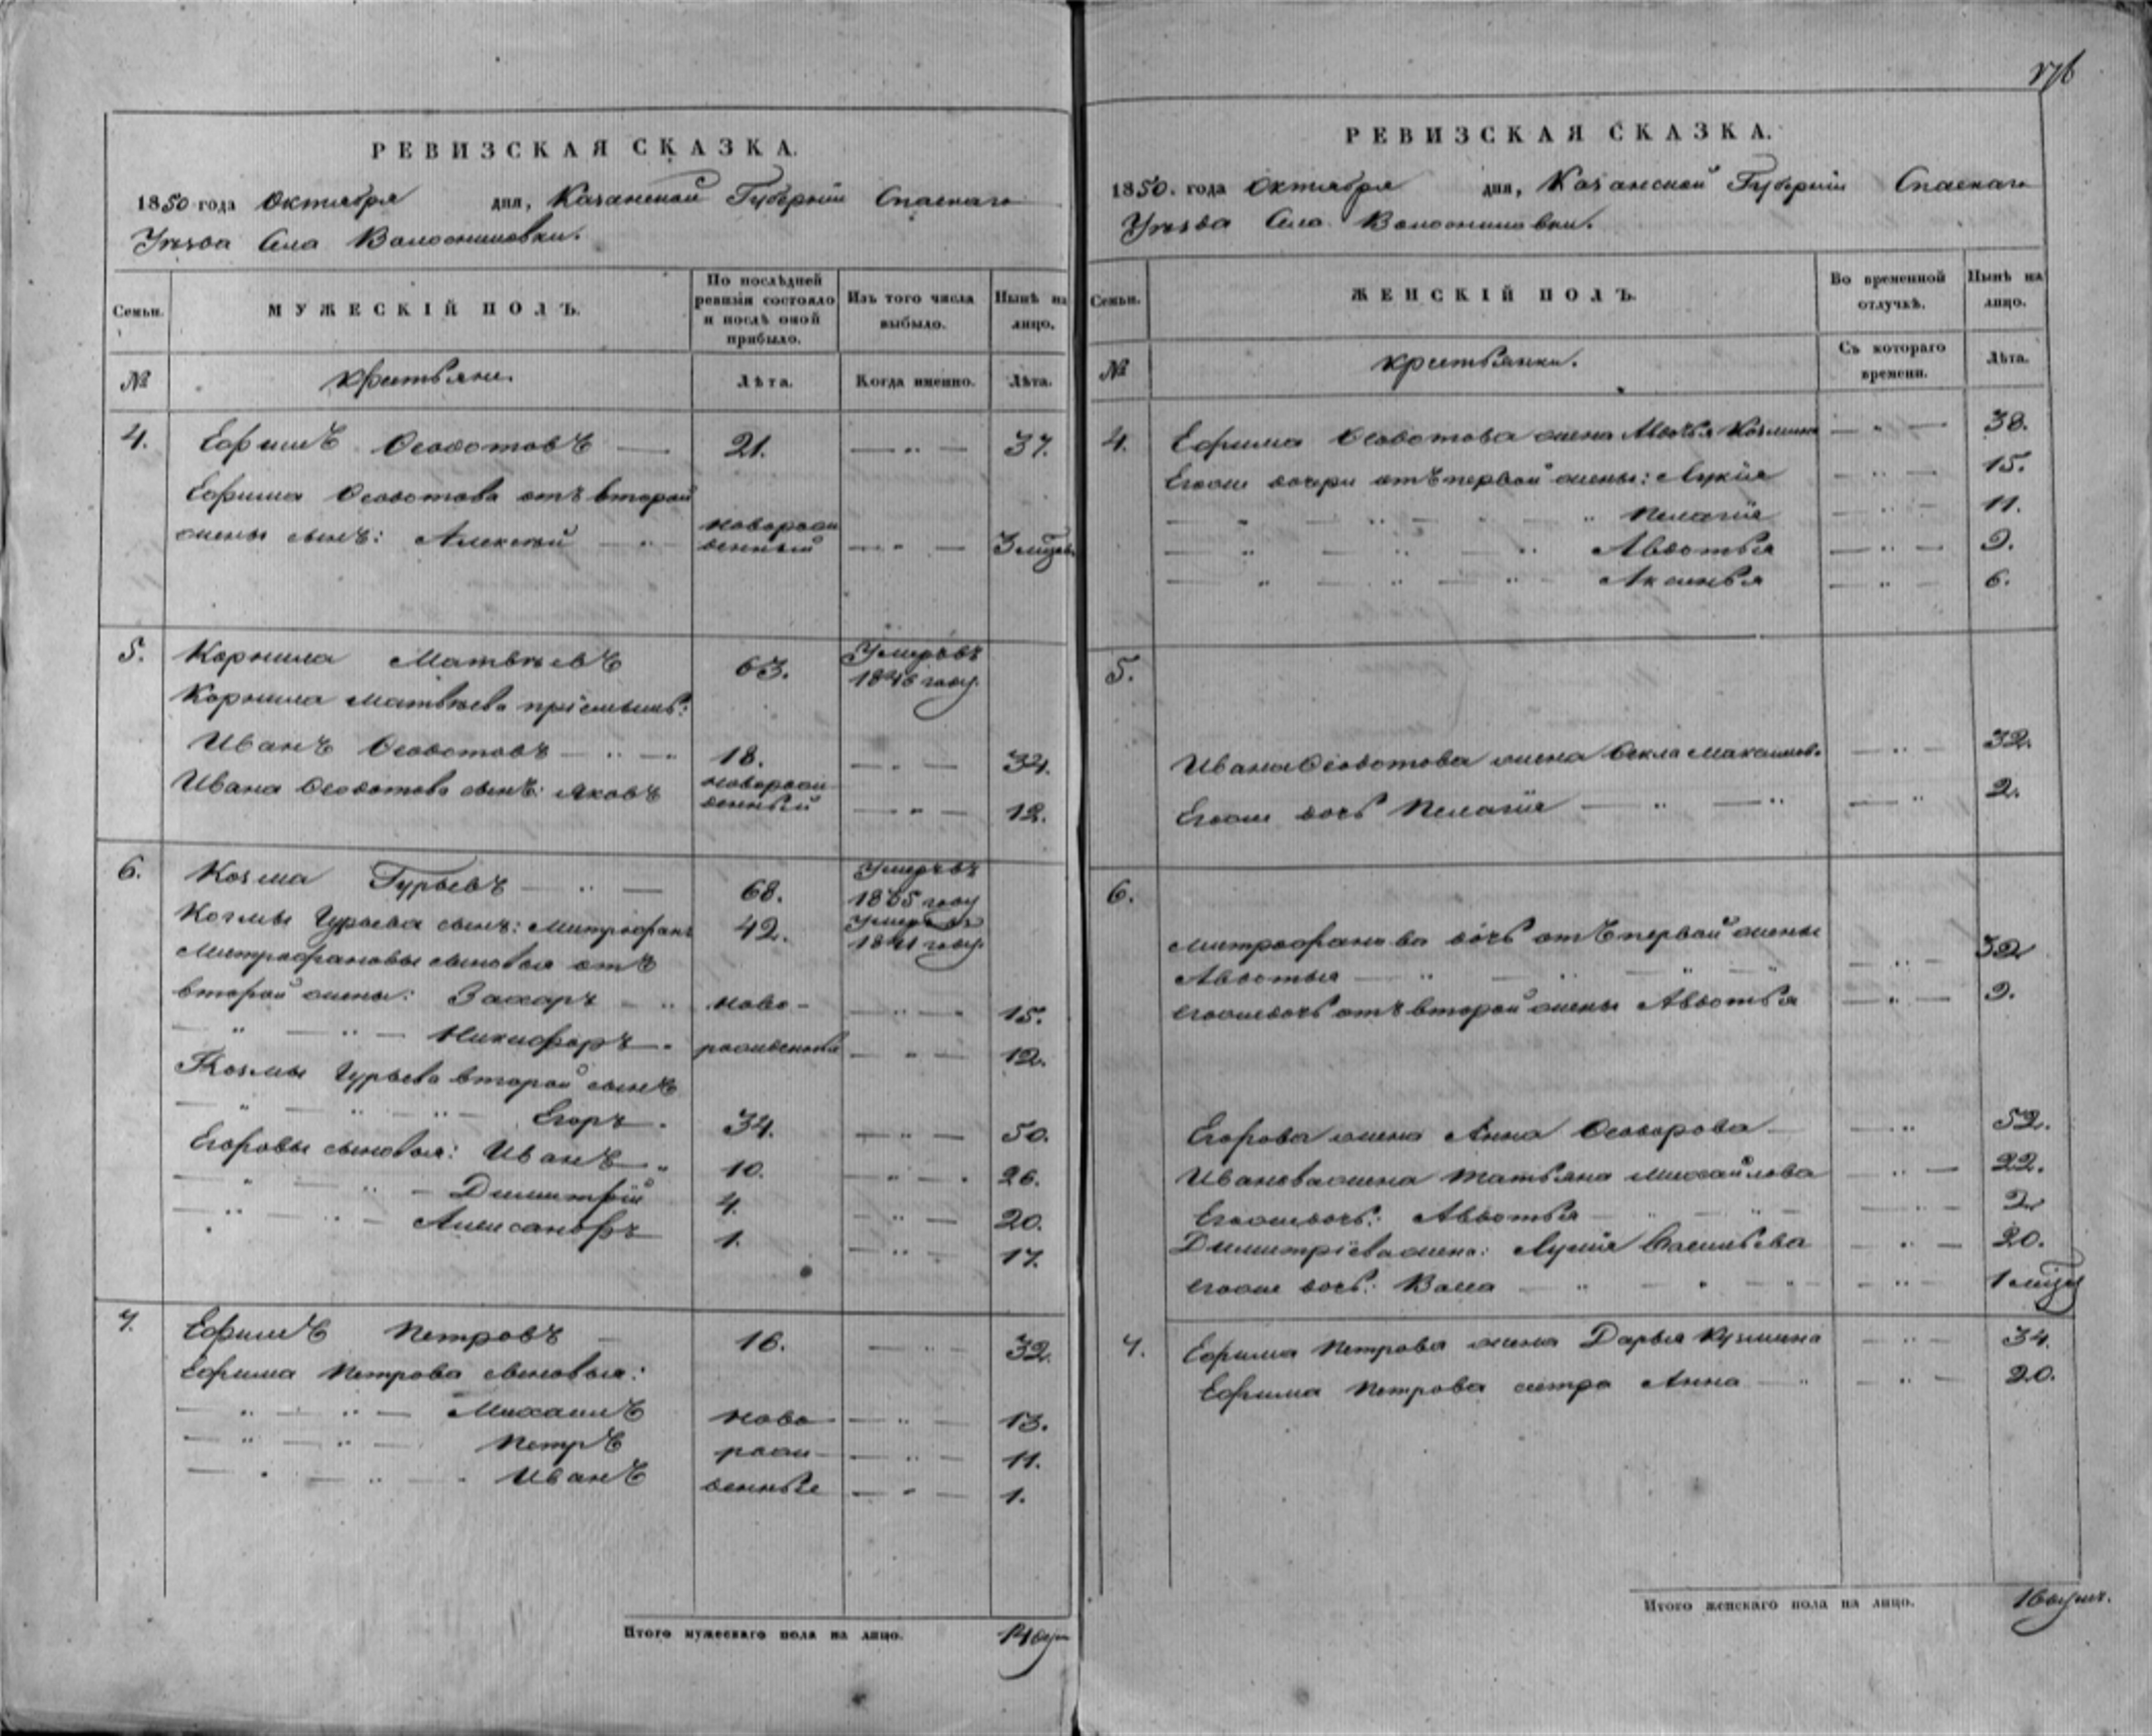 РЕВИЗСКАЯ СКАЗКА.
1850 года Октября дня, Казанской Губерніи Спаскаго
Уѣзда Села
Семьи. МУЖЕСКІЙ ПОЛЪ. По послѣдней ревизіи состояло и послѣ оной прибыло. Изъ того числа выбыло. Нынѣ на лицо.
№ крестьяне. Лѣта. Когда именно. Лѣта.
4. Ефимъ Ѳедотовъ — 21. — " — 37.
Ефима Ѳедотова отъ второй
жены сынъ: Алексѣй — " новорож
денный — " — 3 мѣсяц
5. Корнила Матвѣевъ 63. Умеръ въ
1846 году.
Корнила Матвѣева пріемышъ:
Иванъ Ѳедотовъ — " — 18. — " — 34.
Ивана Ѳедотова сынъ: Яковъ новорож
денный — " — 12.
6. Козма Гурьевъ — " — 68. Умеръ въ
1835 году
Козмы Гурьева сынъ: Митрофанъ 42. Умеръ въ
1841 году.
Митрофановы сыновья отъ
второй жены: Захаръ — " ново- — " — 15.
— " — " — Никифоръ — " рожденные — " — 12.
Козмы Гурьева второй сынъ
— " — " — " Егоръ — 34. — " — 50.
Егоровы сыновья: Иванъ — " 10. — " — 26.
— " — " — Димитрій 4. — " — 20.
— " — " — Александръ 1. — " — 17.
7. Ефимъ Петровъ — 16. — " — 32.
Ефима Петрова сыновья:
— " — " — Михаилъ ново — " — 13.
— " — " — Петръ рож — " — 11.
— " — " — " Иванъ денные — " — 1.
Итого мужескаго пола на лицо. 14 душ
176
РЕВИЗСКАЯ СКАЗКА.
1850. года Октября дня, Казанской Губерніи Спаскаго
Уѣзда Села
Семьи. ЖЕНСКІЙ ПОЛЪ. Во временной отлучкѣ. Нынѣ на лицо.
№ крестьянки. Съ котораго времени. Лѣта.
4. Ефима Ѳедотова жена Авдотья Козмина — " — 38.
Егоже дочери отъ первой жены: Лукія — " — 15.
— " — " — " — " Пелагія — " — 11.
— " — " — " Авдотья — " — 9.
— " — " — " — Аксинья — " — 6.
5.
Ивана Ѳедотова жена Ѳекла Максимова — " — 32.
Егоже дочь Пелагія — " — " — " 2.
6.
Митрофанова дочь отъ первой жены
Авдотья — " — " — " — " — 32
Егоже дочь отъ второй жены Авдотья — " — 9.
Егорова жена Анна Ѳедорова — — " 52.
Иванова жена Татьяна Михайлова — " — 22.
Егоже дочь: Авдотья — " — " — " — 2
Димитріева жена: Лукія Васильева — " — 20.
Егоже дочь: Васса — " — " — " — " — 1 мѣсяц
7. Ефима Петрова жена Дарья Кузмина — " — 34.
Ефима Петрова сестра Анна — " — " — 20.
Итого женскаго пола на лицо. 16 душъ.